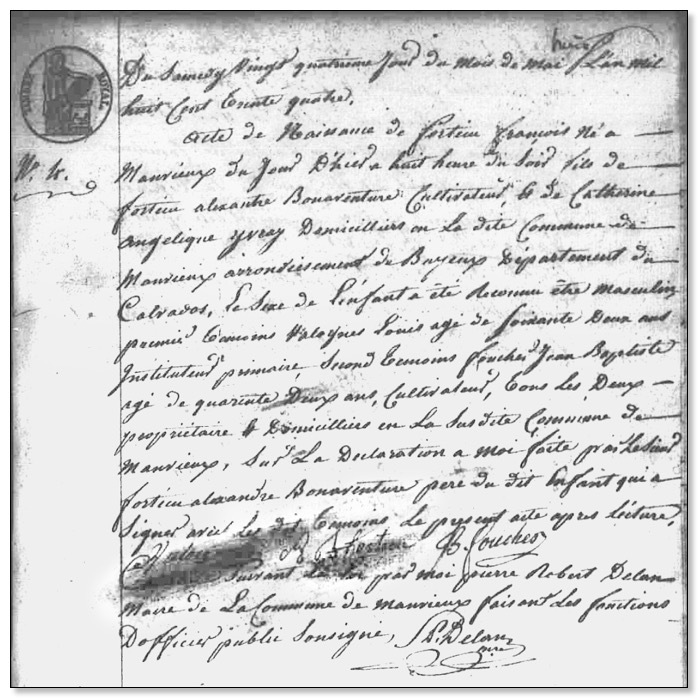 huit
Du Samedy Vingt quatrieme Jour du Mois de mai L'an mil
huit Cent Trente quatre,
TIMBRE ROYAL
Acte de Naissance de fortin francois Né a
N°. 4.
Manvieux du Jour D'hier a huit heure du Soir fils de
fortin alexandre Bonaventure Cultivateur, & de Catherine
angelique yvray Domicilliers en La dite Commune de
Manvieux arrondissement de Bayeux Département du
Calvados, Le Sexe de l'enfant a été Reconnu être masculin
premier temoins Valognes Louis agé de soixante Deux ans
Instituteur primaire, Second temoins fouches Jean Baptiste
agé de quarente Deux ans, Cultivateur, tous Les Deux
propriétaire & Domicilliers en La Susdite Commune de
Manvieux, Sur La Declaration a moi faite par Le Sieur
fortin alexandre Bonaventure pere du dit Enfant qui a
Signer avec Les dit temoins Le present acte apres Lecture,
fortin B. fouches
Suivant La Loi par moi pierre Robert Delan
Maire de La Commune de manvieux faisant Les fonctions
D'officier public Soussigné, Delan